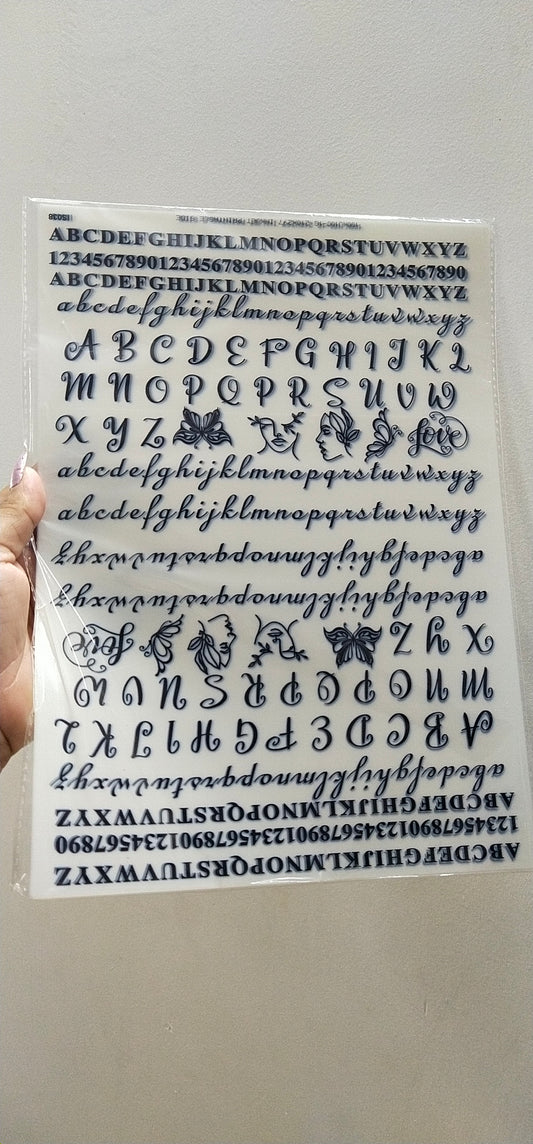 IS038
ABCDEFGHIJKLMNOPQRSTUVWXYZ
123456789012345678901234567890
ABCDEFGHIJKLMNOPQRSTUVWXYZ
abcdefghijklmnopqrstuvwxyz
A B C D E F G H I J K L
M N O P Q P R S U V W
X Y Z Love
abcdefghijklmnopqrstuvwxyz
abcdefghijklmnopqrstuvwxyz
abcdefghijklmnopqrstuvwxyz
abcdefghijklmnopqrstuvwxyz
X Y Z Love
M N O P Q P R S U V W
A B C D E F G H I J K L
abcdefghijklmnopqrstuvwxyz
ABCDEFGHIJKLMNOPQRSTUVWXYZ
123456789012345678901234567890
ABCDEFGHIJKLMNOPQRSTUVWXYZ